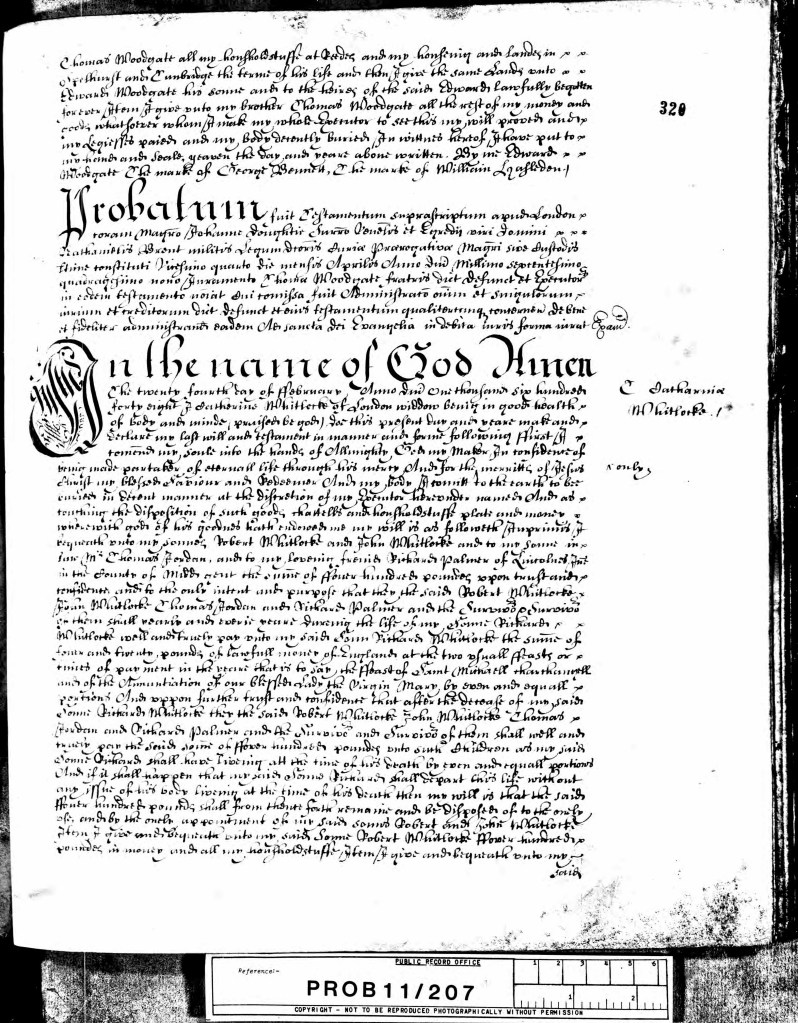 Thomas Woodgate all my housholdstuffe at Reede and my houseing and landes in
Spelhurst and Tunbridge the terme of his life and then I give the same Landes vnto
Edward Woodgate his sonne and to the heires of the said Edward lawfully begotten
for ever, Item I give vnto my brother Thomas Woodgate all the rest of my money and
goodes whatsoever whom I make my whole Executor to see this my will proved and
my Legesies paied and my body decently buried, In wittnes hereof I have put to
my hand and Seale, geaven the day and yeare above written. By me Edward
Woodgate The marke of George Bennett, The marke of William
320
Probatum fuit Testamentum suprascriptum apud London
coram Magro Johanne Surro Venelis et Egregij viri Domini
Nathanielis Brent militis Legum Dcoris Curiae Prerogativae Magri sive Custodis
ltime constituti Vicesimo quarto die mensis Aprilis Anno Dni Millimo Sexcentesimo
quadragesimo nono, Juramento Thomae Woodgate fratris dict defunct et Executoris
in eodem testamento noiat Cui comissa fuit Administratio oium et singulorum
iurium et creditorum dict defunct et eius testamentum qualitercunq concernen De bene
et fideliter administrand eadem Ad sancta dei Evangelia in debita iuris forma iurat Exam
In the name of God Amen
The twenty fourth day of ffebruary Anno Dni One thousand six hundred
forty eight I Catherine Whitlocke of London widdow being in good health
of body and minde, praised be god, doe this present day and yeare make and
declare my last will and testament in manner and forme following ffirst, I
comend my soule into the hands of Allmighty God my Maker, In confidence of
being made partaker of eternall life through his mercy And for the merritts of Jesus
Christ my blessed Saviour and Redeemer And my body I comitt to the earth to bee
buried in decent manner at the discretion of my Executor hereunder named And as
touching the disposition of such goods, chattells and housholdstuffe plate and money
wherewith god of his goodnes hath endowed me my will is as followeth, Imprimis, I
bequeath vnto my sonnes Robert Whitlocke and John Whitlocke and to my sonne in
law Mr Thomas Jordan, and to my loveing freind Richard Palmer of Lincolnes Inn
in the County of Midd gent the summe of ffower hundred poundes vpon trust and
confidence and to the only intent and purpose that they the said Robert Whitlocke
John Whitlocke Thomas Jordan and Richard Palmer and the Survivor & Survivors
of them shall yearly and everie yeare dureing the life of my Sonne Richard
Whitlocke well and truely pay vnto my said Sonn Richard Whitlocke the summe of
foure and twenty pounds of lawfull money of England at the two vsuall ffeasts or
times of payment in the yeare that is to say, the ffeast of Saint Michaell tharchangell
and of the Annuntiation of our blessed Lady the Virgin Mary, by even and equall
portions And vppon further trust and confidence that after the decease of my said
Sonne Richard Whitlocke they the said Robert Whitlocke John Whitlocke Thomas
Jordan and Richard Palmer and the Survivor and Survivors of them shall well and
truely pay the said somme of ffower hundred poundes vnto such Children as my said
Sonne Richard shall have liveing att the time of his death by even and equall portions
And if it shall happen that my said Sonne Richard shall depart this life without
any issue of his body liveing at the time of his death then my will is that the said
ffower hundred pounds shall from thence forth remaine and be disposed of to the onely
vse, and by the onely appointment of my said sonns Robert and John Whitlocke
Item I give and bequeath vnto my said Sonne Robert Whitlocke ffower hundred
poundes in money and all my housholdstuffe, Item I give and bequeath vnto my
said
T Catharinae
Whitlocke.
x only
PUBLIC RECORD OFFICE
Reference:-
PROB 11/207
1 2 3 4 5 6
1 2
COPYRIGHT - NOT TO BE REPRODUCED PHOTOGRAPHICALLY WITHOUT PERMISSION